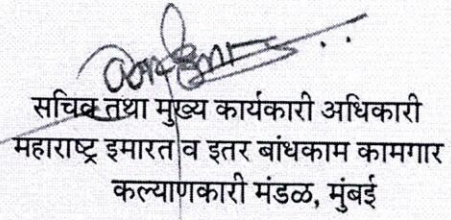 सचिव तथा मुख्य कार्यकारी अधिकारी
महाराष्ट्र इमारत व इतर बांधकाम कामगार
कल्याणकारी मंडळ, मुंबई